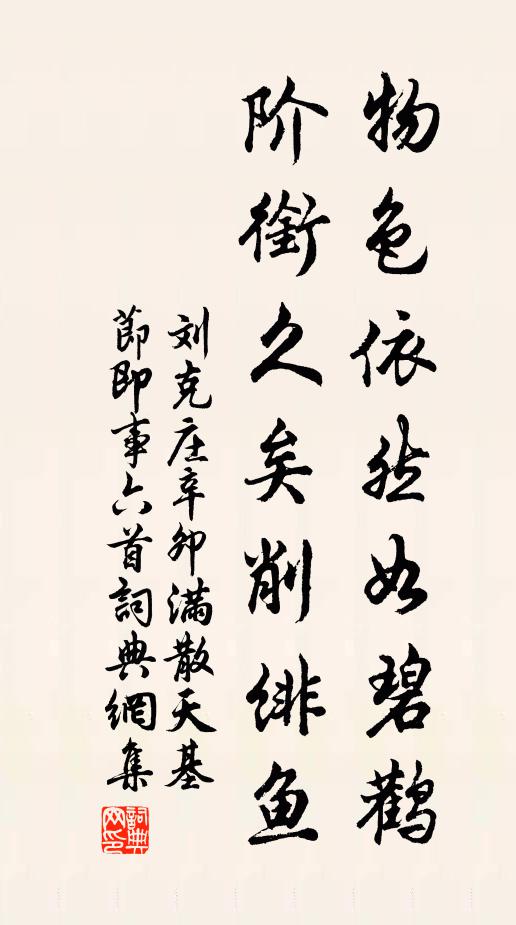 物色依然如碧鹳
阶衔久矣削绯鱼
刘克庄辛卯满散天基
节即事六首词典网集
詞典网印